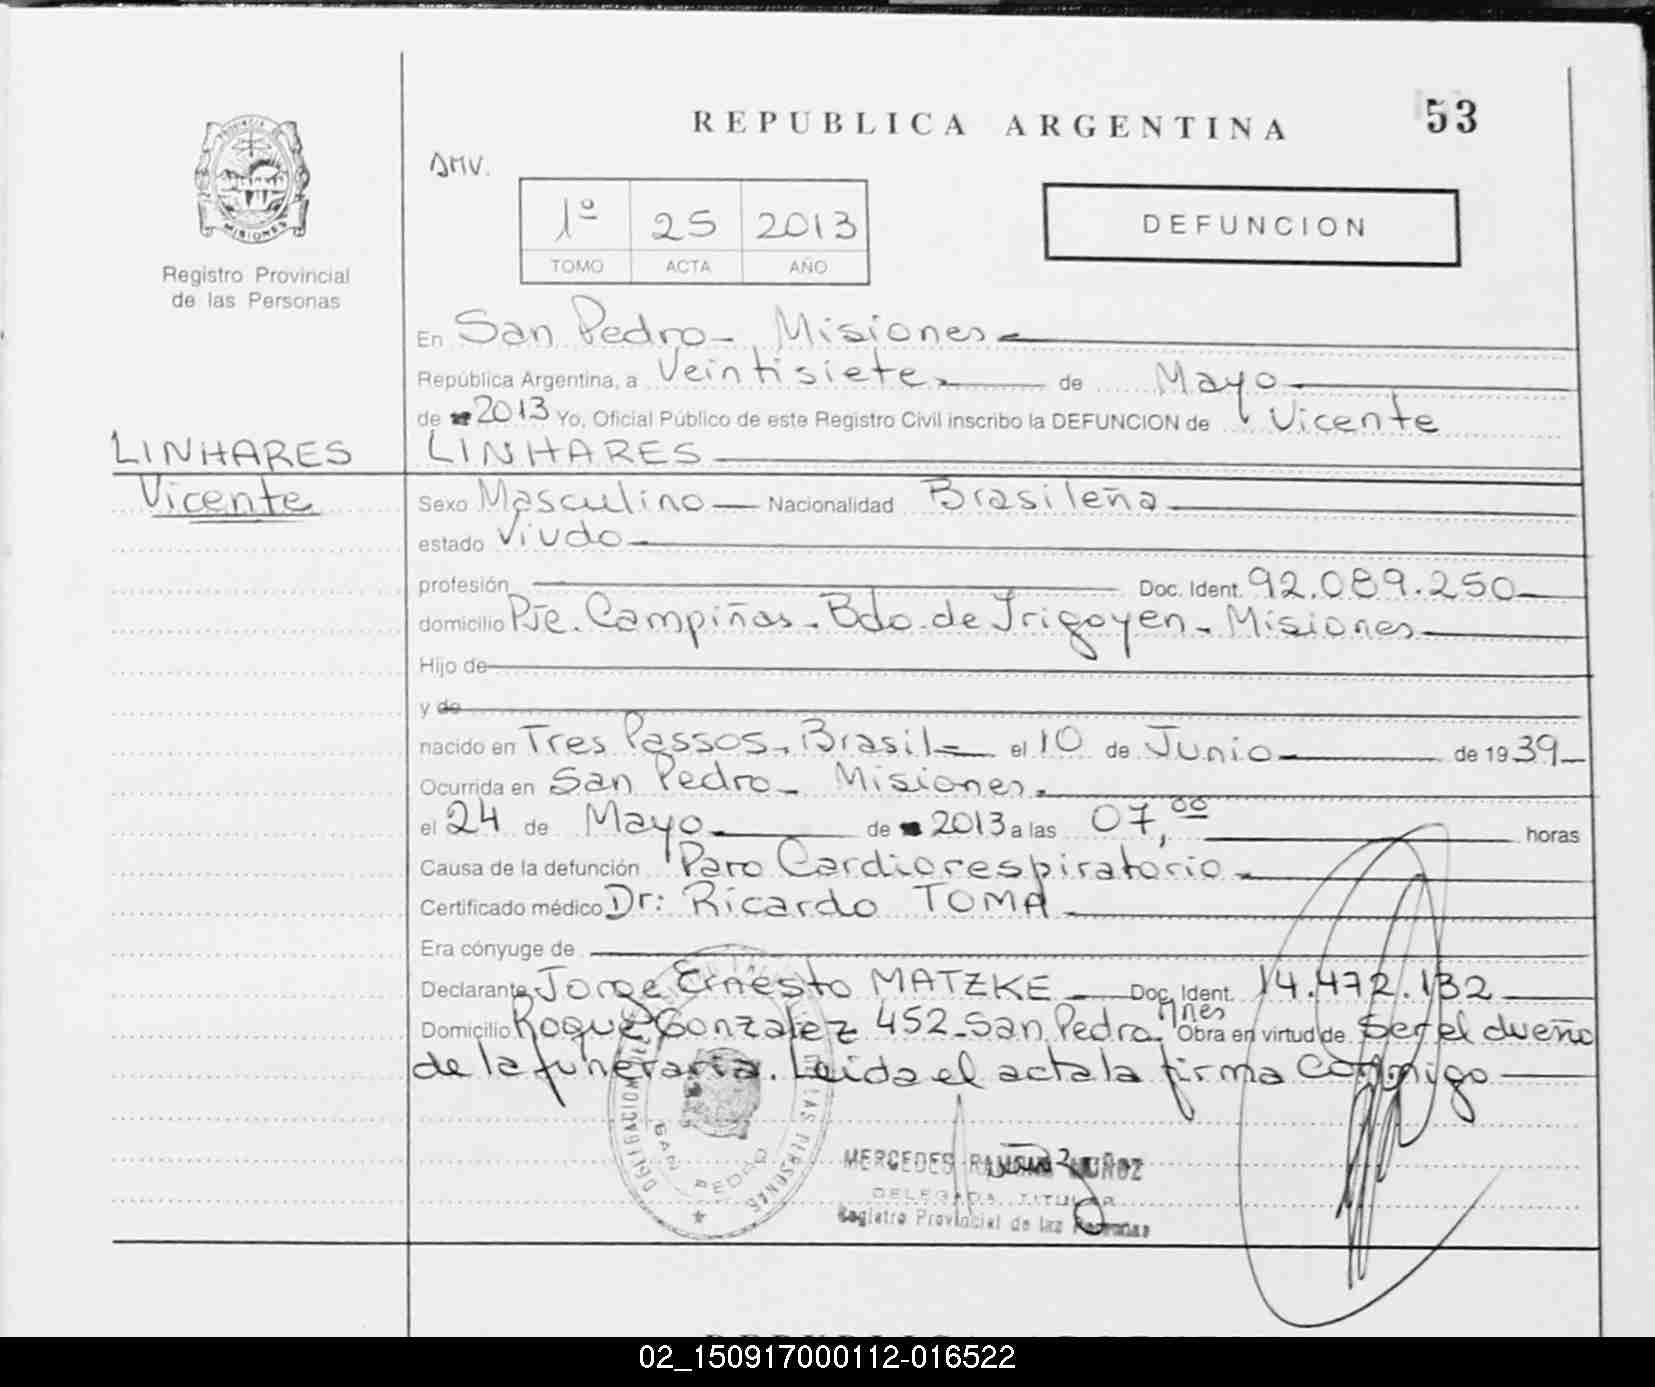 REPUBLICA ARGENTINA
53
PROVINCIA DE
MISIONES
Registro Provincial
de las Personas
DMV.
1º 25 2013
TOMO ACTA AÑO
DEFUNCION
En San Pedro - Misiones
República Argentina, a Veintisiete de Mayo
de 2013 Yo, Oficial Público de este Registro Civil inscribo la DEFUNCION de Vicente
LINHARES
LINHARES
Vicente
Sexo Masculino Nacionalidad Brasileña
estado Viudo
profesión Doc. Ident. 92.089.250
domicilio Pje. Campiñas. Bdo. de Irigoyen - Misiones
Hijo de
y de
nacido en Tres Passos, Brasil el 10 de Junio de 1939
Ocurrida en San Pedro - Misiones.
el 24 de Mayo de 2013 a las 07,00 horas
Causa de la defunción Paro Cardiorespiratorio
Certificado médico Dr: Ricardo TOMA
Era cónyuge de
Declarante Jorge Ernesto MATZKE Doc. Ident. 14.472.132
Domicilio Roque Gonzalez 452 - San Pedro. Mnes Obra en virtud de Ser el dueño
de la funeraria. Leida el acta la firma Conmigo
DELEGACION DE LAS PERSONAS
SAN PEDRO
MERCEDES RAMONA MUÑOZ
DELEGADA TITULAR
Registro Provincial de las Personas
02_150917000112-016522